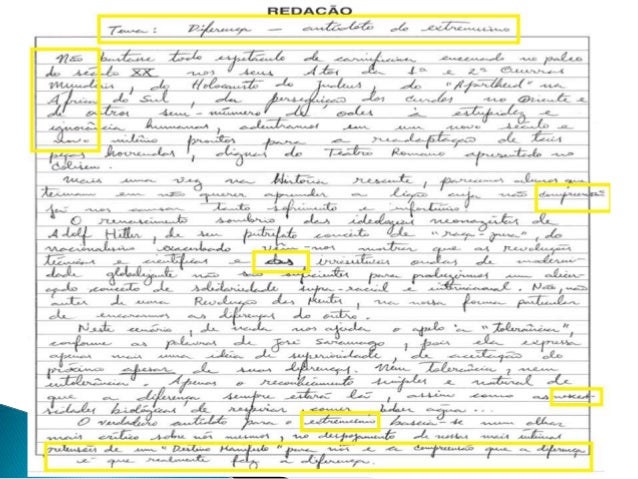 REDAÇÃO
Tema: Diferença — antídoto do extremismo
Não bastasse todo espetáculo de carnificina encenado no palco
do século XX nos seus Atos da 1ª e 2ª Guerras
Mundiais, do Holocausto do Judeus, do "Apartheid" na
África do Sul, da perseguição dos curdos no Oriente e
de outros sem-número de odes à estupidez e
ignorância humanas, adentramos em um novo século e
novo milênio prontos para a readaptação de tais
peças horrendas, dignas do Teatro Romano apresentado no
Coliseu.
Mais uma vez na História recente, parecemos alunos que
teimam em não querer aprender a lição cuja não compreensão
já nos causou tanto sofrimento e infortúnio.
O renascimento sombrio das ideologias neonazistas de
Adolf Hitler, de seu putrefato conceito de "raça-pura" do
nacionalismo exacerbado vêm-nos mostrar que as revoluções
técnicas e científicas e das irresistíveis ondas de moderni-
dade globalizante não são suficientes para produzirmos um alicer-
çado conceito de solidariedade supra-racial e internacional. Não, não
antes de uma Revolução das Mentes, na nossa forma particular
de encararmos as diferenças do outro.
Neste cenário, de nada nos ajuda o apelo à "tolerância",
conforme as palavras de José Saramago, pois ela expressa
apenas mais uma ideia de superioridade, de aceitação do
próximo apesar de suas diferenças. Nem tolerância, nem
intolerância. Apenas o reconhecimento simples e natural de
que a diferença sempre estará lá, assim como as necesi-
sidades biológicas de respirar, comer, beber água...
O verdadeiro antídoto para o extremismo baseia-se num olhar
mais crítico sobre nós mesmos, no despojamento de nossas mais íntimas
pretensões de um "Destino Manifesto" para nós e a compreensão que a diferença
é que realmente faz a diferença.